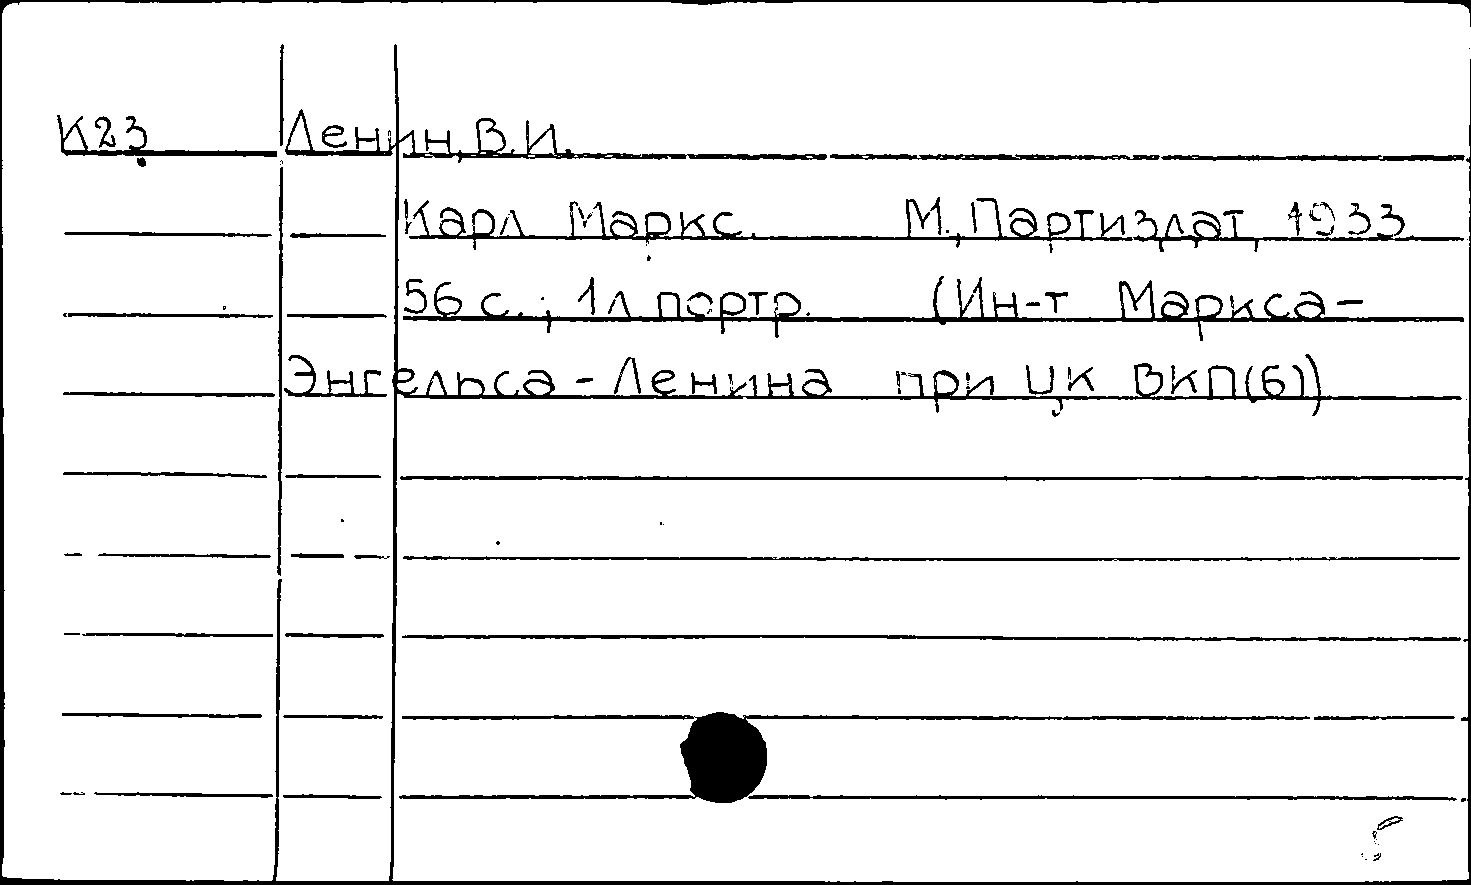 К23 Ленин, В.И.
Карл Маркс. М., Партиздат, 1933
56 с.; 1л портр. (Ин-т Маркса-
Энгельса-Ленина при ЦК ВКП(б))
5